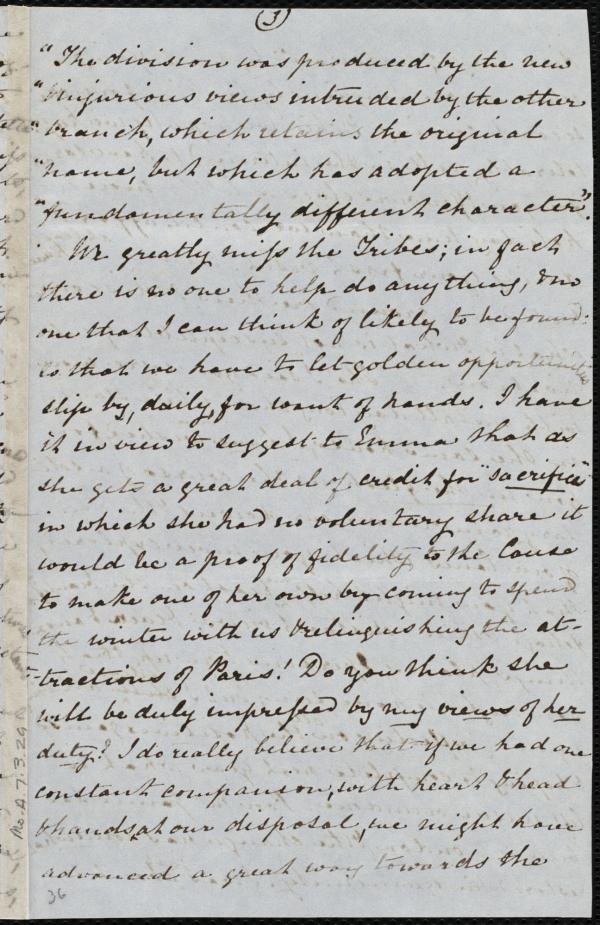 (3)
"The division was produced by the new
"& injurious views intruded by the other
"branch, which retains the original
"name, but which has adopted a
"fundamentally different character".
We greatly miss the Tribes; in fact
there is no one to help do anything, & no
one that I can think of likely to be found:
so that we have to let golden opportunities
slip by, daily, for want of hands. I have
it in view to suggest to Emma that as
she gets a great deal of credit for "sacrifice"
in which she had no voluntary share it
would be a proof of fidelity to the Cause
to make one of her own by coming to spend
the winter with us & relinquishing the at-
tractions of Paris! Do you think she
will be duly impressed by my views of her
duty? I do really believe that if we had one
constant companion, with heart & head
& hands, at our disposal, we might have
advanced a great way towards the
36
Ms.A.7.3.29